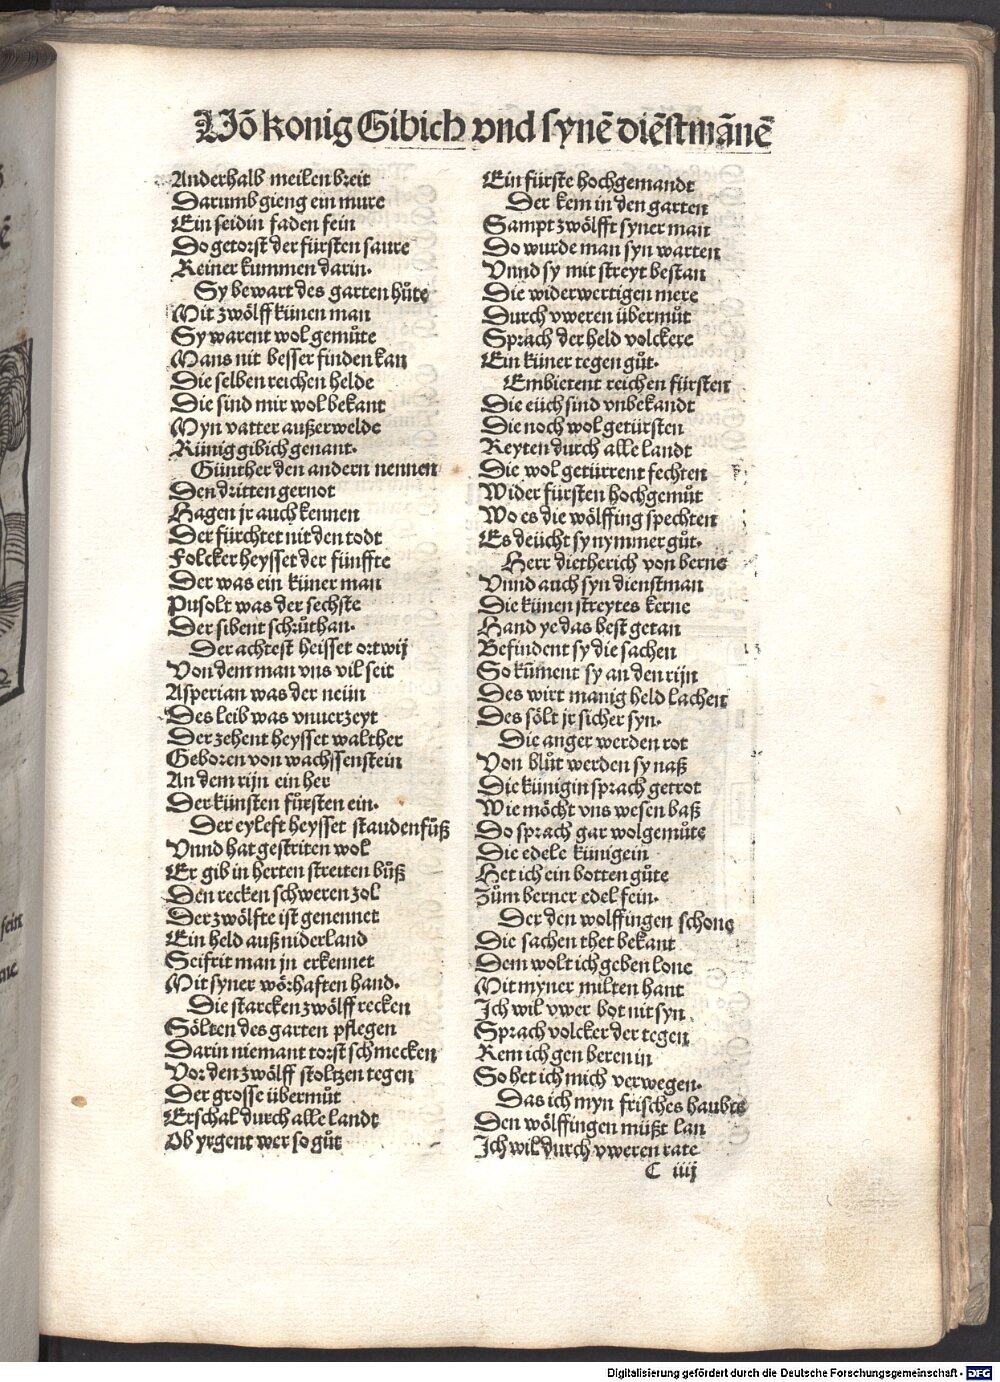 Võ konig Gibich vnd synẽ diẽstmãnẽ
Anderhalb meilen breit
Darumb gieng ein mure
Ein seidin faden fein
Do getorst der fürsten saure
Keiner kummen darin.
Sy bewart des garten hůte
Mit zwölff künen man
Sy warent wol gemůte
Mans nit besser finden kan
Die selben reichen helde
Die sind mir wol bekant
Myn vatter außerwelde
Künig gibich genant.
Günther den andern nennen
Den dritten gernot
Hagen jr auch kennen
Der fürchtet nit den todt
Folcker heysset der fünffte
Der was ein küner man
Pusolt was der sechste
Der sibent schrůthan.
Der achtest heisset ortwij
Von dem man vns vil seit
Asperian was der neün
Des leib was vnuerzeyt
Der zehent heysset walther
Geboren von wachssenstein
An dem rijn ein her
Der künsten fürsten ein.
Der eyleft heysset staudenfůß
Vnnd hat gestriten wol
Er gib in herten streiten bůß
Den recken schweren zol
Der zwölfte ist genennet
Ein held auß niderland
Seifrit man jn erkennet
Mit syner wörhaften hand.
Die starcken zwölff recken
Sölten des garten pflegen
Darin niemant torst schmecken
Vor den zwölff stoltzen tegen
Der grosse übermůt
Erschal durch alle landt
Ob yrgent wer so gůt
Ein fürste hochgemandt
Der kem in den garten
Sampt zwölfft syner man
Do wurde man syn warten
Vnnd sy mit streyt bestan
Die widerwertigen mere
Durch vweren übermůt
Sprach der held volckere
Ein küner tegen gůt.
Embietent reichen fürsten
Die eüch sind vnbekandt
Die noch wol getürsten
Reyten durch alle landt
Die wol getürrent fechten
Wider fürsten hochgemůt
Wo es die wölffing spechten
Es deücht sy nymmer gůt.
Herr dietherich von berne
Vnnd auch syn dienstman
Die künen streytes kerne
Hand ye das best getan
Befindent sy die sachen
So kũment sy an den rijn
Des wirt manig held lachen
Des sölt jr sicher syn.
Die anger werden rot
Von blůt werden sy naß
Die künigin sprach getrot
Wie möcht vns wesen baß
Do sprach gar wolgemůte
Die edele künigein
Het ich ein botten gůte
Zům berner edel fein.
Der den wolffingen schone
Die sachen thet bekant
Dem wolt ich geben lone
Mit myner milten hant
Jch wil vwer bot nit syn
Sprach volcker der tegen
Kem ich gen beren in
So het ich mich verwegen.
Das ich myn frisches haubte
Den wölffingen müßt lan
Jch wil durch vweren rate
C iiij
Digitalisierung gefördert durch die Deutsche Forschungsgemeinschaft - DFG